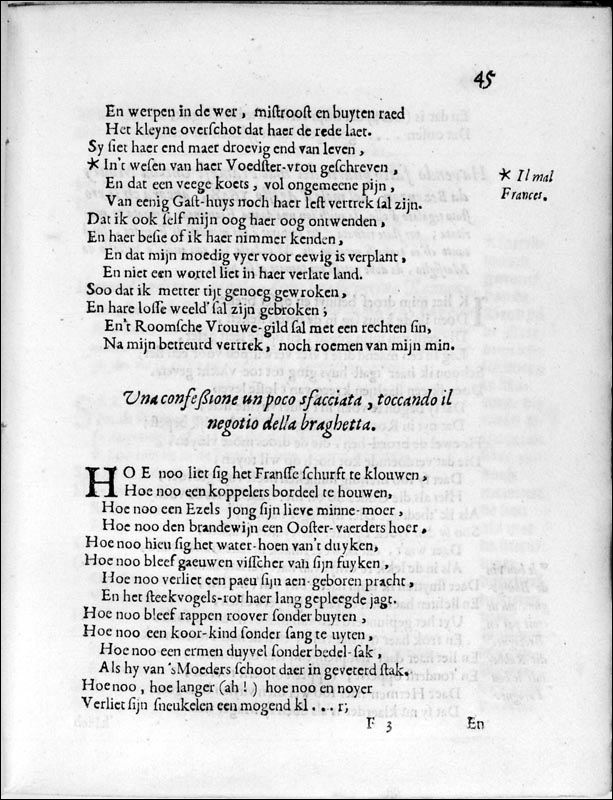 45
En werpen in de wer, mistroost en buyten raed
Het kleyne overschot dat haer de rede laet.
Sy siet haer end maer droevig end van leven,
* In't wesen van haer Voedster-vrou geschreven,
* Il mal
Frances.
En dat een veege koets, vol ongemeene pijn,
Van eenig Gast-huys noch haer lest vertrek sal zijn.
Dat ik ook self mijn oog haer oog ontwenden,
En haer besie of ik haer nimmer kenden,
En dat mijn moedig vyer voor eewig is verplant,
En niet een wortel liet in haer verlate land.
Soo dat ik metter tijt genoeg gewroken,
En hare losse weeld' sal zijn gebroken;
En't Roomsche Vrouwe-gild sal met een rechten sin,
Na mijn betreurd vertrek, noch roemen van mijn min.
Una confessione un poco sfacciata, toccando il
negotio della braghetta.
HOE noo liet sig het Fransse schurft te klouwen,
Hoe noo een koppelers bordeel te houwen,
Hoe noo een Ezels jong sijn lieve minne-moer,
Hoe noo den brandewijn een Ooster-vaerders hoer,
Hoe noo hieu sig het water-hoen van't duyken,
Hoe noo bleef gaeuwen visscher van sijn fuyken,
Hoe noo verliet een paeu sijn aen-geboren pracht,
En het steekvogels-rot haer lang gepleegde jagt.
Hoe noo bleef rappen roover sonder buyten,
Hoe noo een koor-kind sonder sang te uyten,
Hoe noo een ermen duyvel sonder bedel-sak,
Als hy van 's Moeders schoot daer in geveterd stak.
Hoe noo, hoe langer (ah!) hoe noo en noyer
Verliet sijn sneukelen een mogend kl...r;
F 3
En